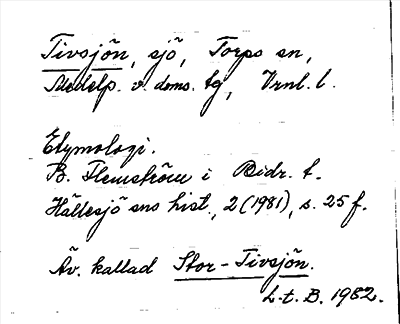 Tivsjön, sjö, Torps sn,
Medelp. v. doms. tg, Vrnl. l.
Etymologi.
B. Flemström i Bidr. t.
Hällesjö sns hist., 2 (1981), s. 25 f.
Äv. kallad Stor-Tivsjön.
L. t. B. 1982.